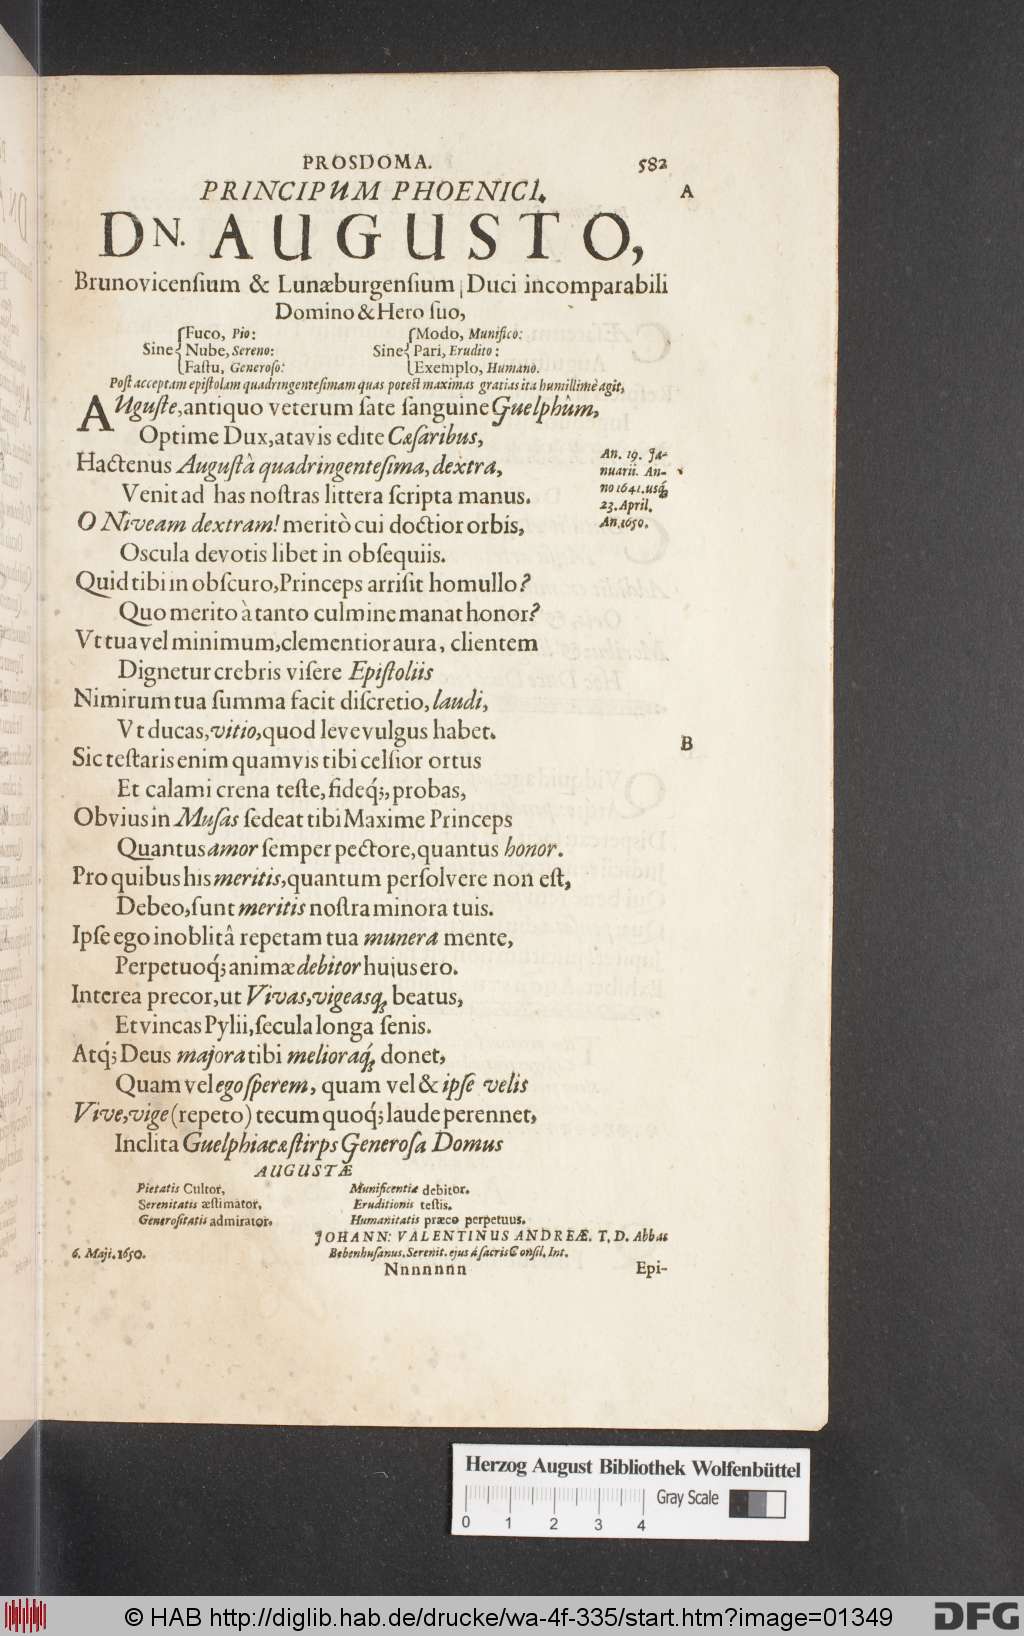 PROSDOMA. 582
PRINCIPUM PHOENICI. A
DN. AUGUSTO,
Brunovicensium & Lunæburgensium, Duci incomparabili
Domino & Hero suo,
Sine { Fuco, Pio: Nube, Sereno: Fastu, Generoso:
Sine { Modo, Munifico: Pari, Erudito: Exemplo, Humano.
Post acceptam epistolam quadringentesimam quas potest maximas gratias ita humillimè agit,
AUguste, antiquo veterum sate sanguine Guelphûm,
Optime Dux, atavis edite Cæsaribus,
Hactenus Augustà quadringentesima, dextra,
Venit ad has nostras littera scripta manus.
An. 19. Ja-
nuarii. An-
no 1641. usq́;
23. April.
An. 1650.
O Niveam dextram! meritò cui doctior orbis,
Oscula devotis libet in obsequiis.
Quid tibi in obscuro, Princeps arrisit homullo?
Quo merito à tanto culmine manat honor?
Vt tua vel minimum, clementior aura, clientem
Dignetur crebris visere Epistoliis
Nimirum tua summa facit discretio, laudi,
Vt ducas, vitio, quod leve vulgus habet.
B
Sic testaris enim quamvis tibi celsior ortus
Et calami crena teste, fideq́;, probas,
Obvius in Musas sedeat tibi Maxime Princeps
Quantus amor semper pectore, quantus honor.
Pro quibus his meritis, quantum persolvere non est,
Debeo, sunt meritis nostra minora tuis.
Ipse ego inoblitâ repetam tua munera mente,
Perpetuoq́; animæ debitor hujus ero.
Interea precor, ut Vivas, vigeasq́; beatus,
Et vincas Pylii, secula longa senis.
Atq́; Deus majora tibi melioraq́; donet,
Quam vel ego sperem, quam vel & ipse velis
Vive, vige (repeto) tecum quoq́; laude perennet,
Inclita Guelphiacæ stirps Generosa Domus
AUGUSTÆ
Pietatis Cultor, Munificentiæ debitor.
Serenitatis æstimator, Eruditionis testis.
Generositatis admirator. Humanitatis præco perpetuus.
JOHANN: VALENTINUS ANDREÆ. T. D. Abbas
6. Maji. 1650. Bebenhusanus. Serenit. ejus á sacris Consil. Int.
Nnnnnnn Epi-
Herzog August Bibliothek Wolfenbüttel
Gray Scale
0 1 2 3 4
© HAB http://diglib.hab.de/drucke/wa-4f-335/start.htm?image=01349
DFG